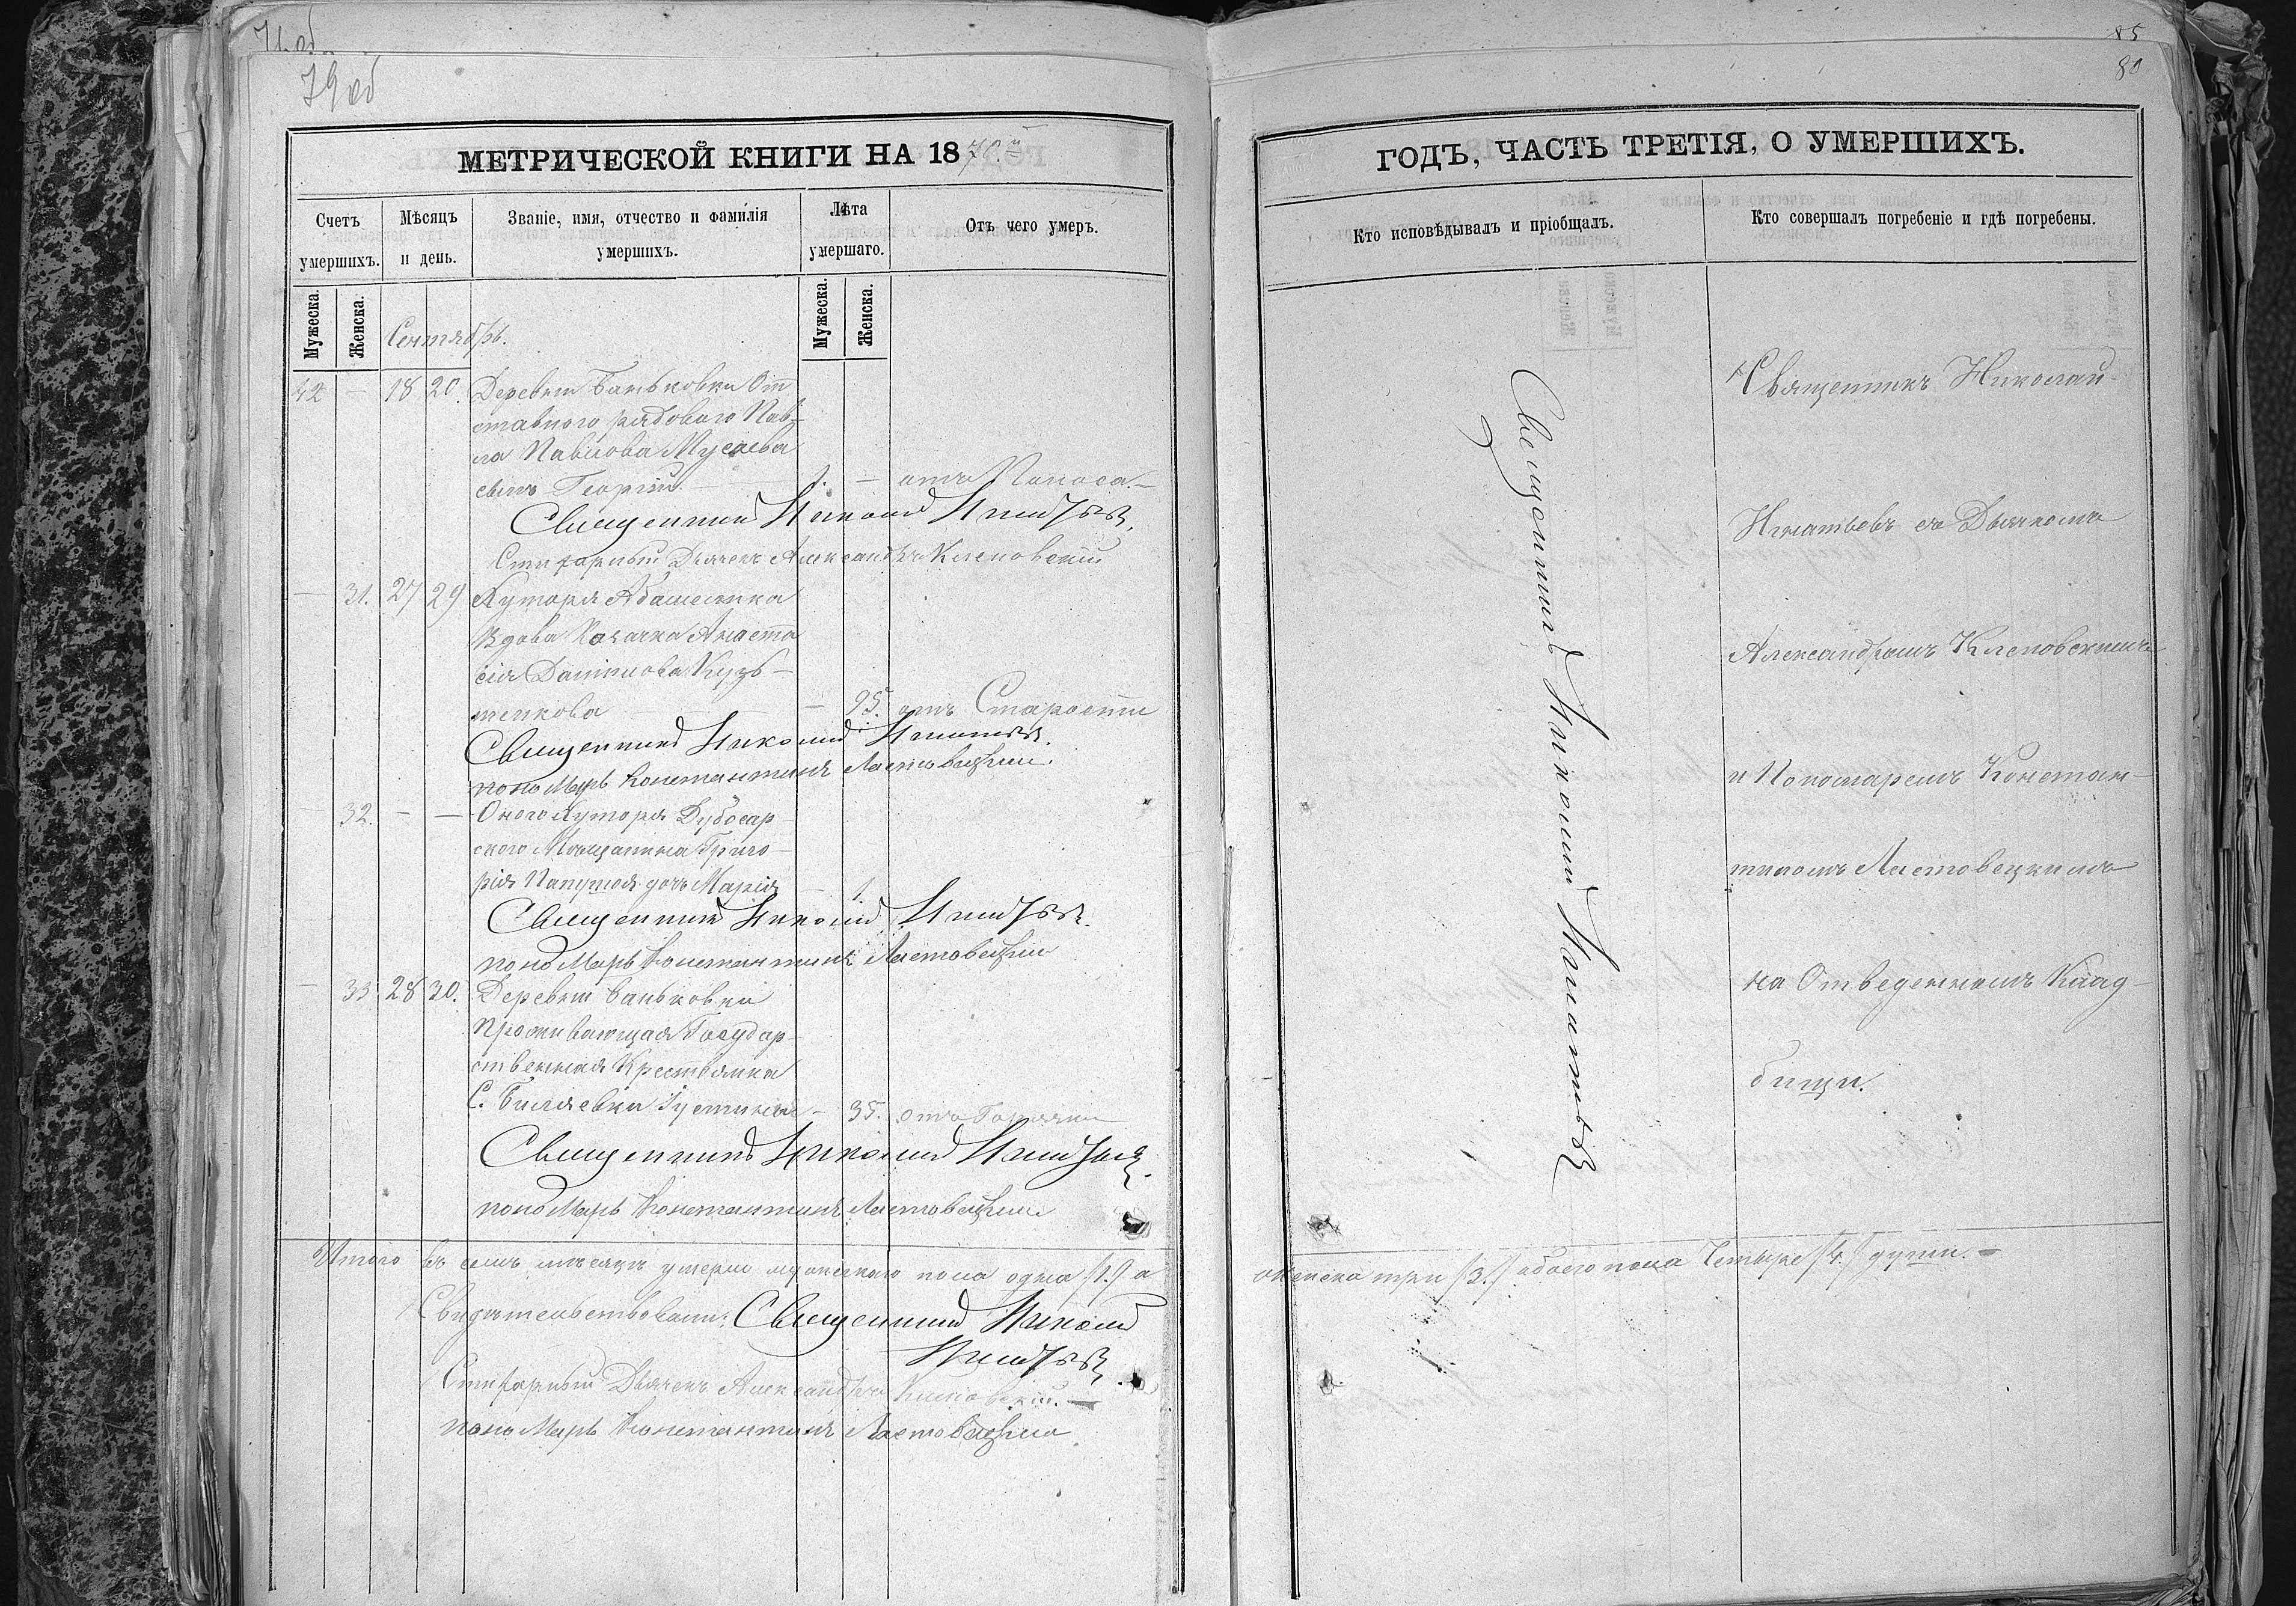 79 об
85
80
МЕТРИЧЕСКОЙ КНИГИ НА 1870й
Счетъ умершихъ.
Мѣсяцъ и день.
Званіе, имя, отчество и фамилія умершихъ.
Лѣта умершаго.
Отъ чего умеръ.
Мужеска.
Женска.
Мужеска.
Женска.
Сентябрь.
42 — 18 20. Деревни Баньковки От
ставного рядового Пав-
ла Павлова Мусаева
сынъ Георгій 1. — отъ Поноса. —
Священникъ Николай Игнатьевъ.
Стихарный Дьячекъ Александръ Клеповскій
— 31. 27 29 Хутора Абашенка
Вдова Казачка Анаста
сія Данилова Кузь-
менкова — 95. отъ Старости
Священникъ Николай Игнатьевъ.
пономарь Константинъ Ластовецкій.
32. — — Оного Хутора Дубосар-
ского Мѣщанина Григо-
рія дочь Марія — 1.
Священникъ Николай Игнатьевъ.
пономарь Константинъ Ластовецкій
— 33. 28 30. Деревни Баньковки
Проживающая Государ-
ственная Крестьянка
С. Биляевки Іустина — 35. отъ Горячки
Священникъ Николай Игнатьевъ.
пономарь Константинъ Ластовецкій
Итого въ семъ мѣсяцѣ умерло мужескаго пола одна /1./ а
Свидѣтельствовали: Священникъ Николай
Игнатьевъ
Стихарный Дьячекъ Александръ Клеповскій. —
пономарь Константинъ Ластовецкій
ГОДЪ, ЧАСТЬ ТРЕТІЯ, О УМЕРШИХЪ.
Кто исповѣдывалъ и пріобщалъ.
Кто совершалъ погребеніе и гдѣ погребены.
Священникъ Николай Игнатьевъ
Священникъ Николай
Игнатьевъ съ Дьячкомъ
Александромъ Клеповскимъ
и Пономаремъ Констан-
тиномъ Ластовецкимъ
на Отведенномъ Клад-
бищи.
женска три /3./ обоего пола Четыре /4./ души. —